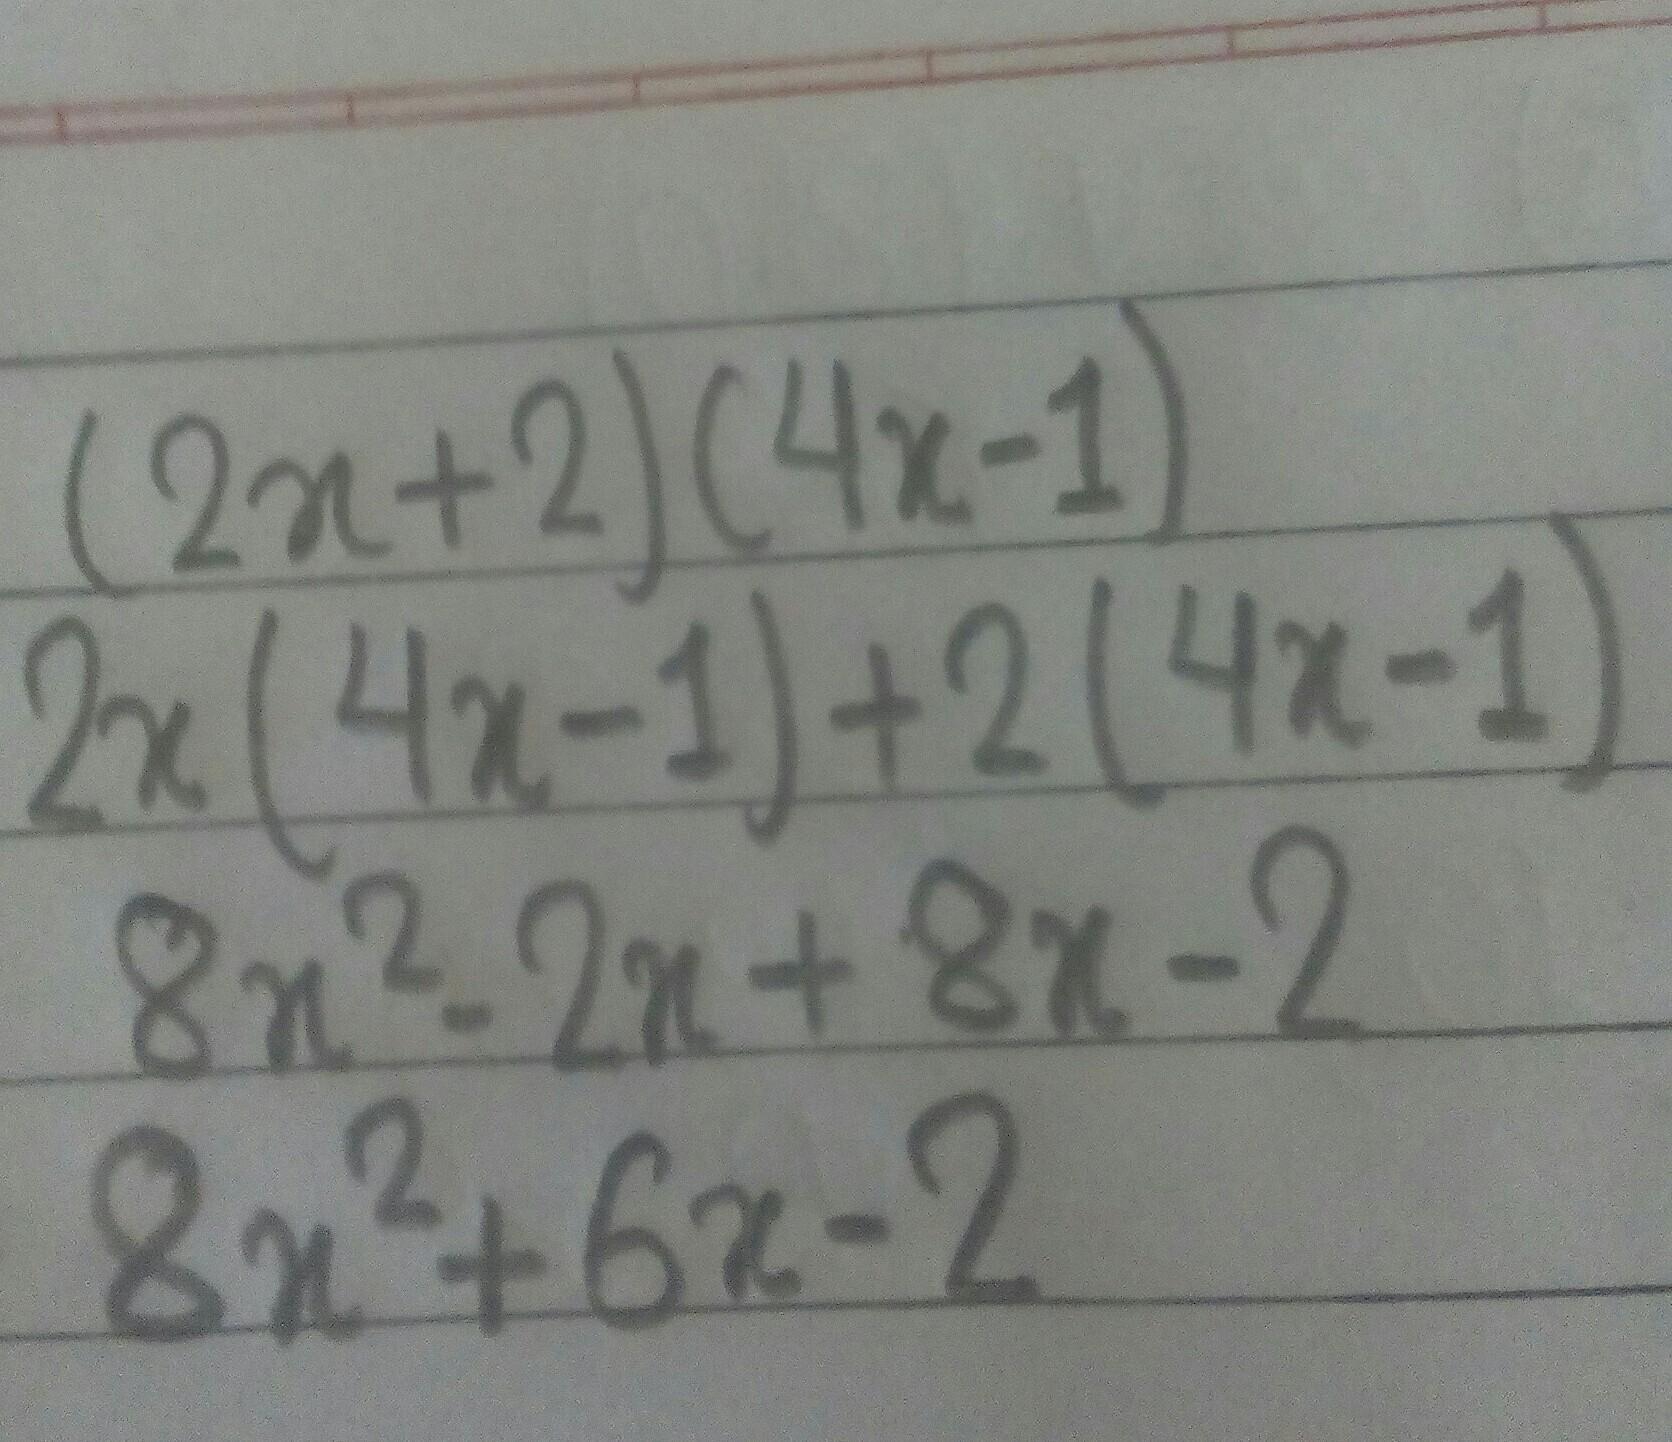 (2x+2)(4x-1)
2x(4x-1)+2(4x-1)
8x²-2x+8x-2
8x²+6x-2